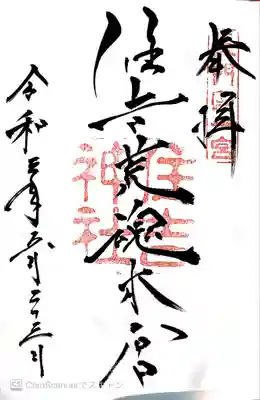 奉拝
住吉荒魂本宮
住吉神社
令和年月二十三日
CamScannerでスキャン